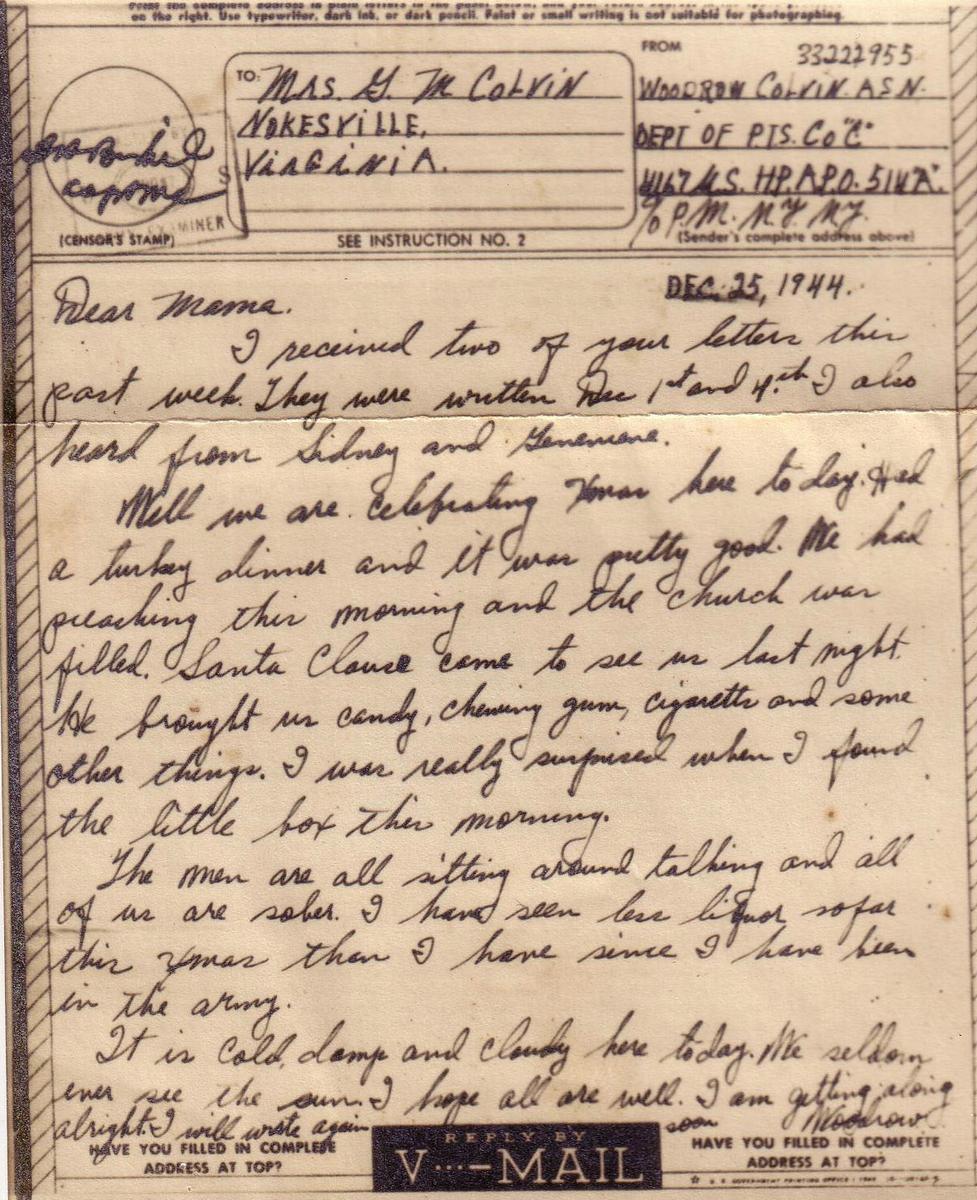 on the right. Use typewriter, dark ink, or dark pencil. Faint or small writing is not suitable for photographing.
TO: Mrs. G. M Colvin
Nokesville,
Virginia.
FROM 33222955
Woodrow Colvin. A.S.N.
Dept of Pts. Co "C"
4167 U.S. HP. A.P.O. 514 "A".
℅ P.M. N.Y. N.Y.
(Sender's complete address above)
EXAMINER
(CENSOR'S STAMP)
SEE INSTRUCTION NO. 2
Dec. 25, 1944.
Dear Mama.
I received two of your letters this
past week. They were written Dec 1st and 4th. I also
heard from Sidney and
Well we are celebrating Xmas here today. Had
a turkey dinner and it was pretty good. We had
preaching this morning and the church was
filled. Santa Clause came to see us last night.
He brought us candy, chewing gum, cigaretts and some
other things. I was really surprised when I found
the little box this morning.
The men are all sitting around talking and all
of us are sober. I have seen less liquor sofar
this Xmas than I have since I have been
in the army.
It is cold, damp and cloudy here today. We seldom
ever see the sun. I hope all are well. I am getting along
alright. I will write again soon Woodrow.
HAVE YOU FILLED IN COMPLETE
ADDRESS AT TOP?
REPLY BY
V···—MAIL
HAVE YOU FILLED IN COMPLETE
ADDRESS AT TOP?